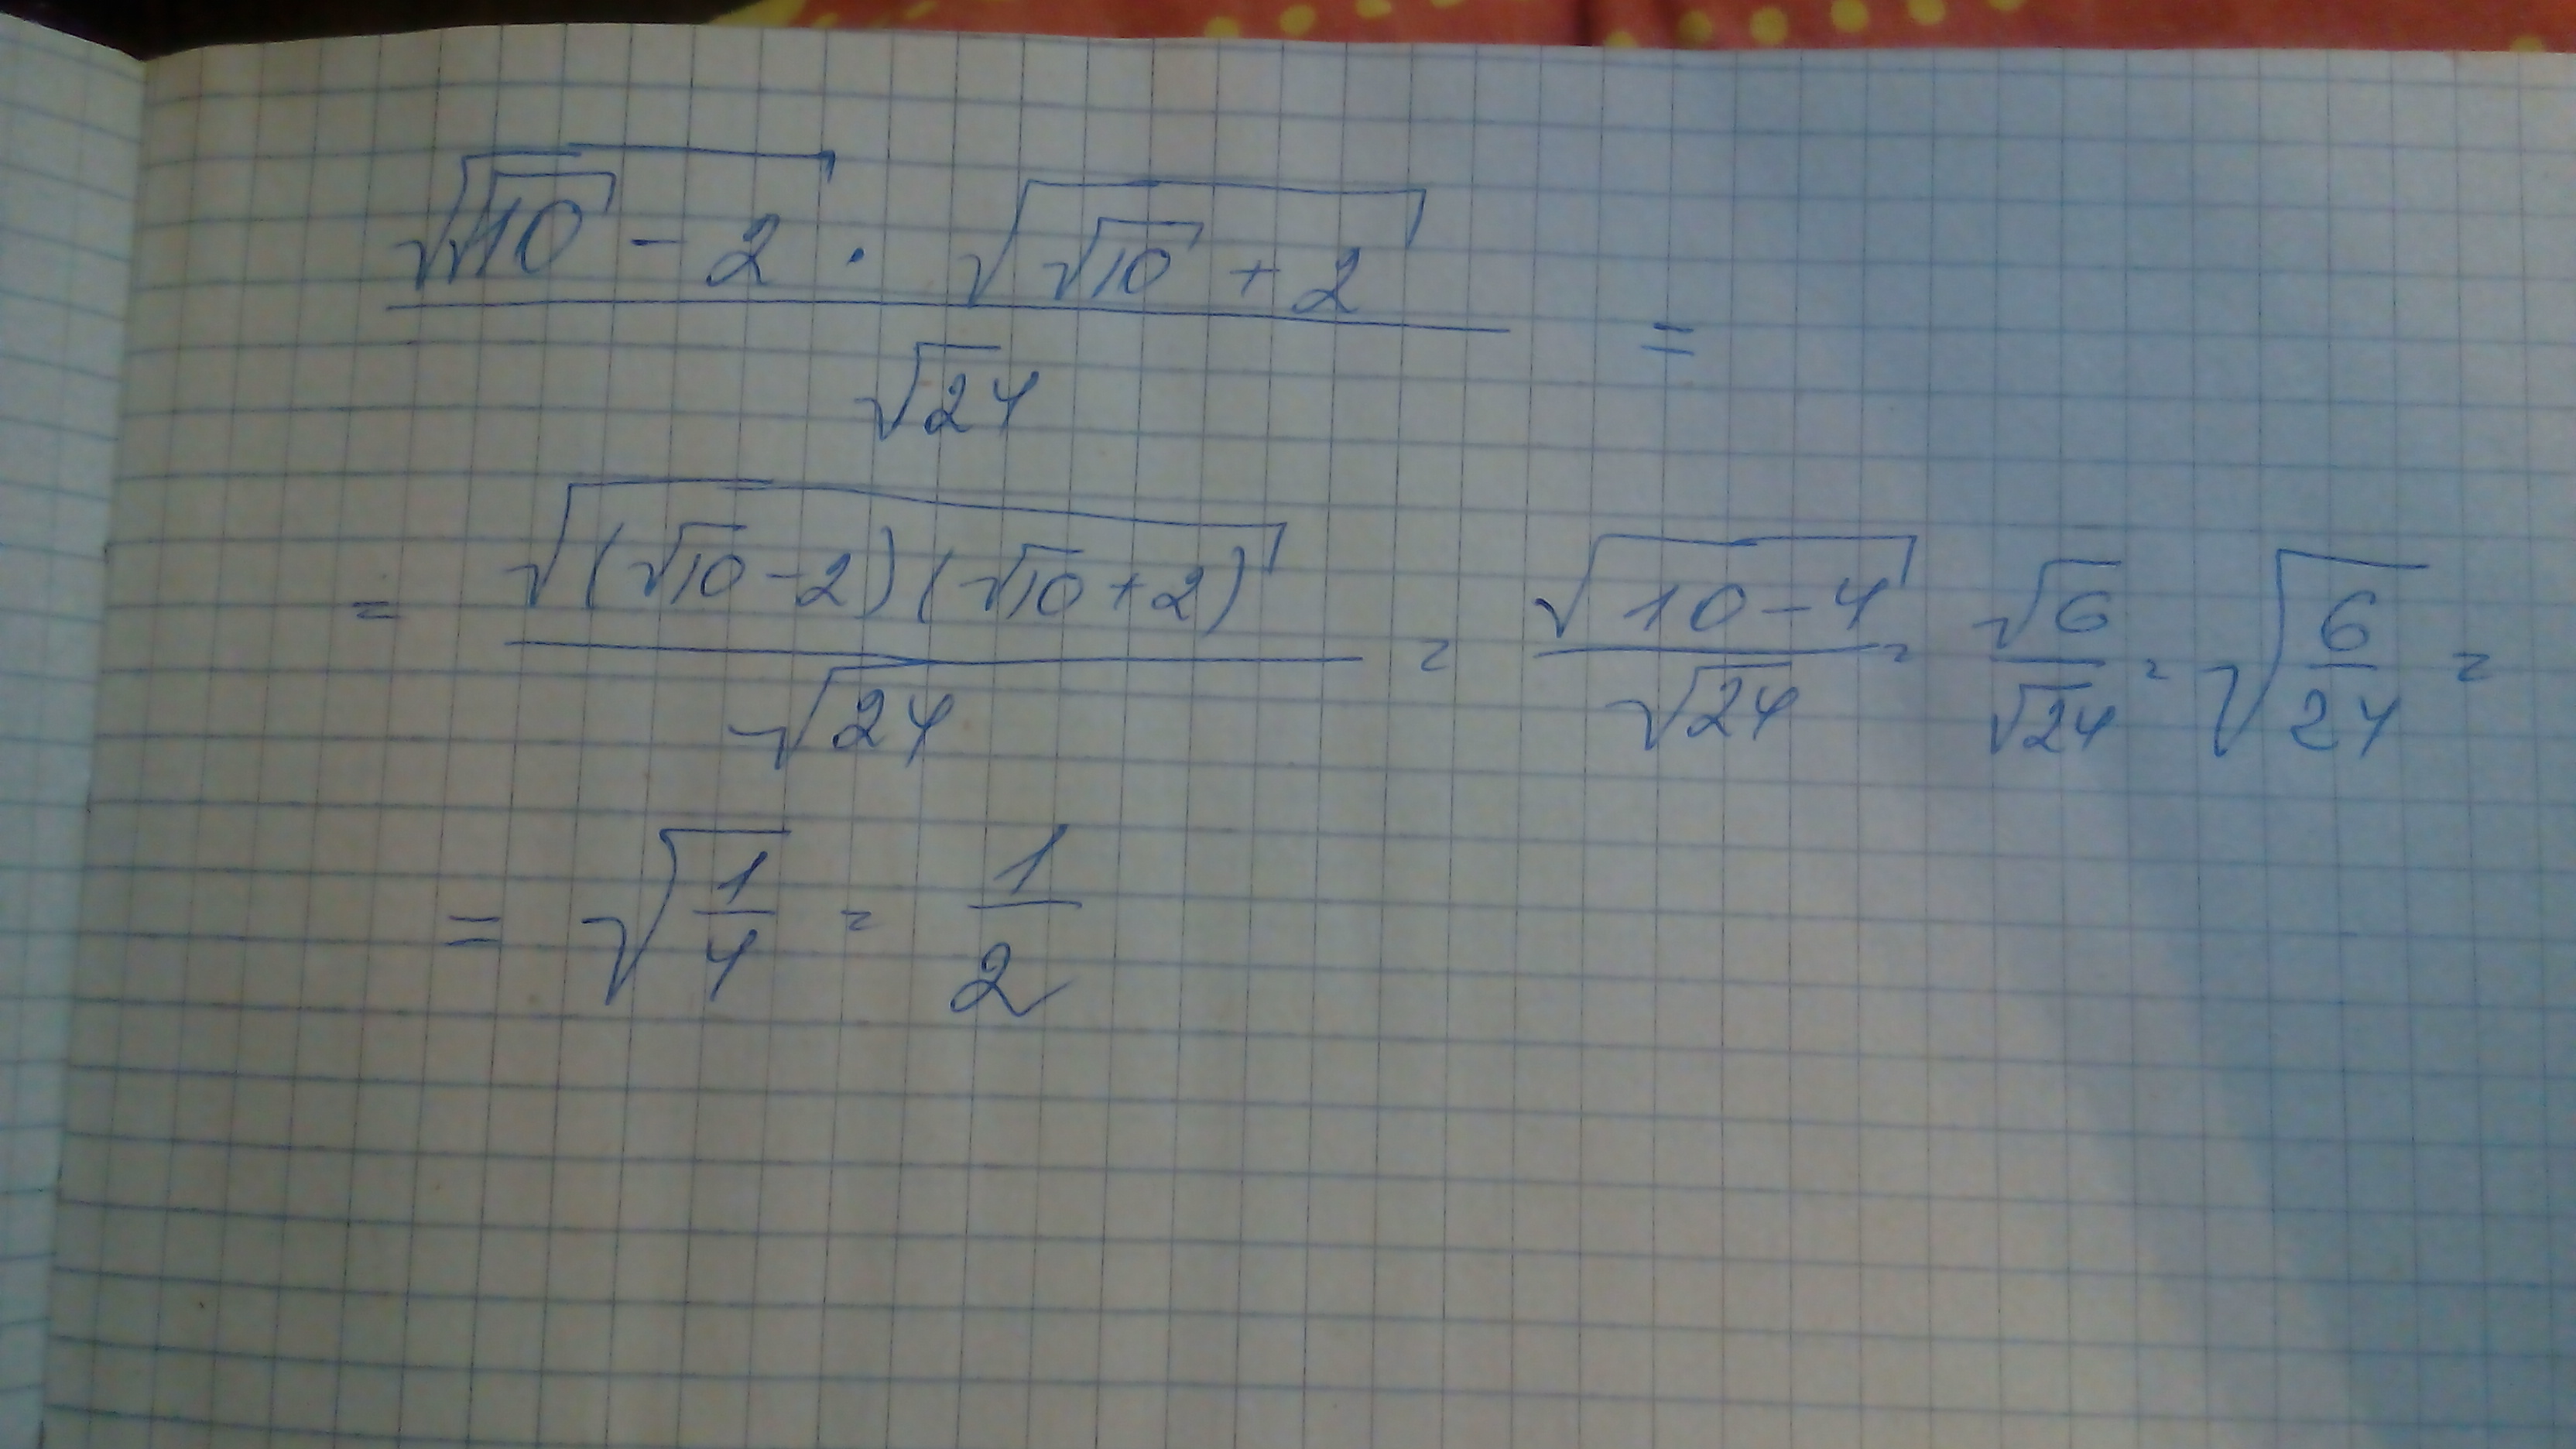 √(√10 - 2) · √(√10 + 2) / √24 =
= √((√10 - 2)(√10 + 2)) / √24 = √(10 - 4) / √24 = √6 / √24 = √(6/24) =
= √(1/4) = 1/2